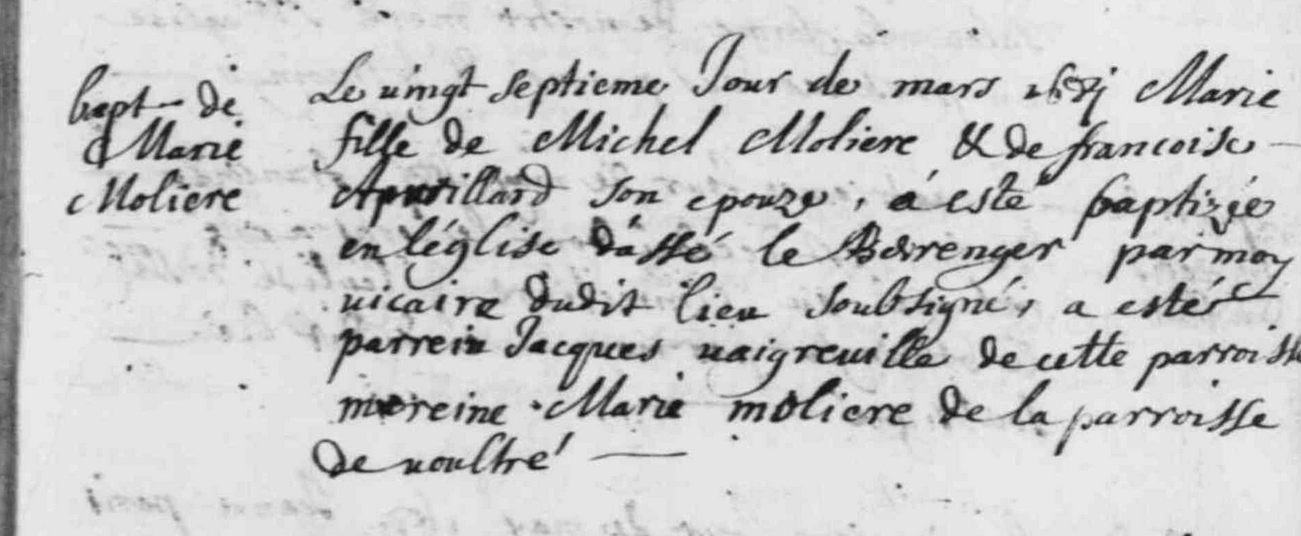 bapt de
Marie
Moliere
Le vingt septieme Jour de mars Marie
fille de Michel Moliere & de francoise
son epouze, á esté baptizée
en léglise dássé le Berenger par moy
vicaire dudit lieu soubsigné, a esté
parrein Jacques vaigreville de cette parroisse
mereine Marie moliere de la parroisse
de voultré